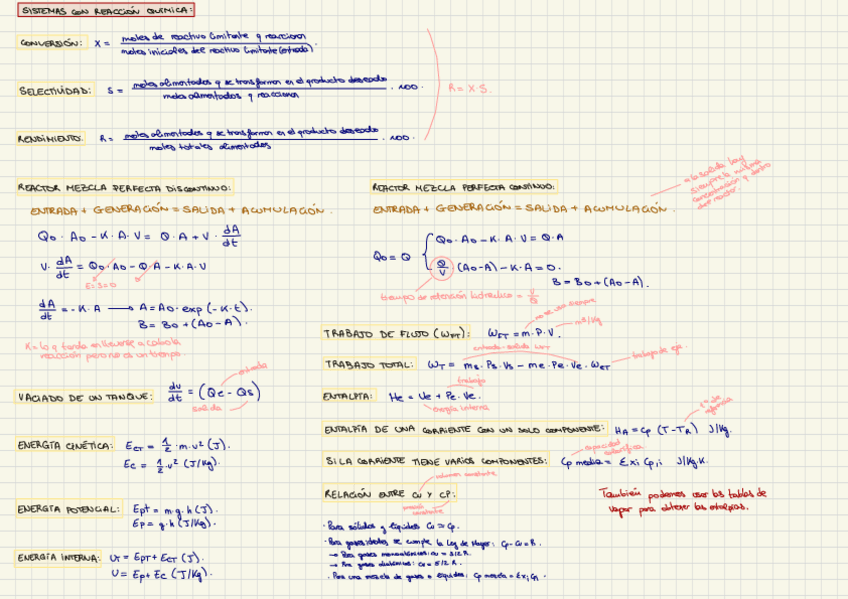 SISTEMAS CON REACCIÓN QUÍMICA:
CONVERSIÓN: X = moles de reactivo limitante q reaccionan / moles iniciales del reactivo limitante (entrada).
SELECTIVIDAD: S = moles alimentados q se transforman en el producto deseado / moles alimentados q reaccionan · 100.
R = X·S.
RENDIMIENTO: R = moles alimentados q se transforman en el producto deseado / moles totales alimentados · 100.
REACTOR MEZCLA PERFECTA DISCONTINUO:
ENTRADA + GENERACIÓN = SALIDA + ACUMULACIÓN.
Q0 · A0 - K · A · V = Q · A + V · dA/dt
V · dA/dt = Q0 · A0 - Q · A - K · A · V
E=S=0
dA/dt = - K · A → A = A0 · exp (-K·t).
B = B0 + (A0 - A).
K = lo q tarda en llevarse a cabo la
reacción pero no es un tiempo.
VACIADO DE UN TANQUE: dv/dt = (Qe - Qs)
entrada
salida
ENERGÍA CINÉTICA: ECT = 1/2 · m · v² (J).
Ec = 1/2 · v² (J/Kg).
ENERGÍA POTENCIAL: EPT = m·g·h (J).
Ep = g·h (J/Kg).
ENERGÍA INTERNA: UT = EPT + ECT (J).
U = Ep + Ec (J/Kg).
REACTOR MEZCLA PERFECTA CONTINUO:
a la salida hay
siempre la misma
concentración q dentro
del reactor.
ENTRADA + GENERACIÓN = SALIDA + ACUMULACIÓN.
Q0 = Q { Q0 · A0 - K · A · V = Q · A
Q/V · (A0 - A) - K · A = 0.
B = B0 + (A0 - A).
tiempo de retención hidráulico = V/Q
TRABAJO DE FLUJO (WFT): WFT = m · P · V.
m³/Kg
TRABAJO TOTAL: WT = ms · Ps · Vs - me · Pe · Ve · WET
trabajo de eje.
ENTALPÍA: He = Ue + Pe · Ve.
trabajo
energía interna
ENTALPÍA DE UNA CORRIENTE CON UN SOLO COMPONENTE: HA = Cp (T - TR) J/Kg.
Tª de
referencia
SI LA CORRIENTE TIENE VARIOS COMPONENTES: Cp media = Σxi Cp,i J/Kg·K.
capacidad
calorífica
RELACIÓN ENTRE CV Y CP:
volumen constante
presión
constante
También podemos usar las tablas de
vapor para obtener las entalpías.
· Para sólidos y líquidos Cv ≃ Cp.
· Para gases ideales se cumple la Ley de Mayer: Cp - Cv = R.
→ Para gases monoatómicos: Cv = 3/2 R.
→ Para gases diatómicos: Cv = 5/2 R.